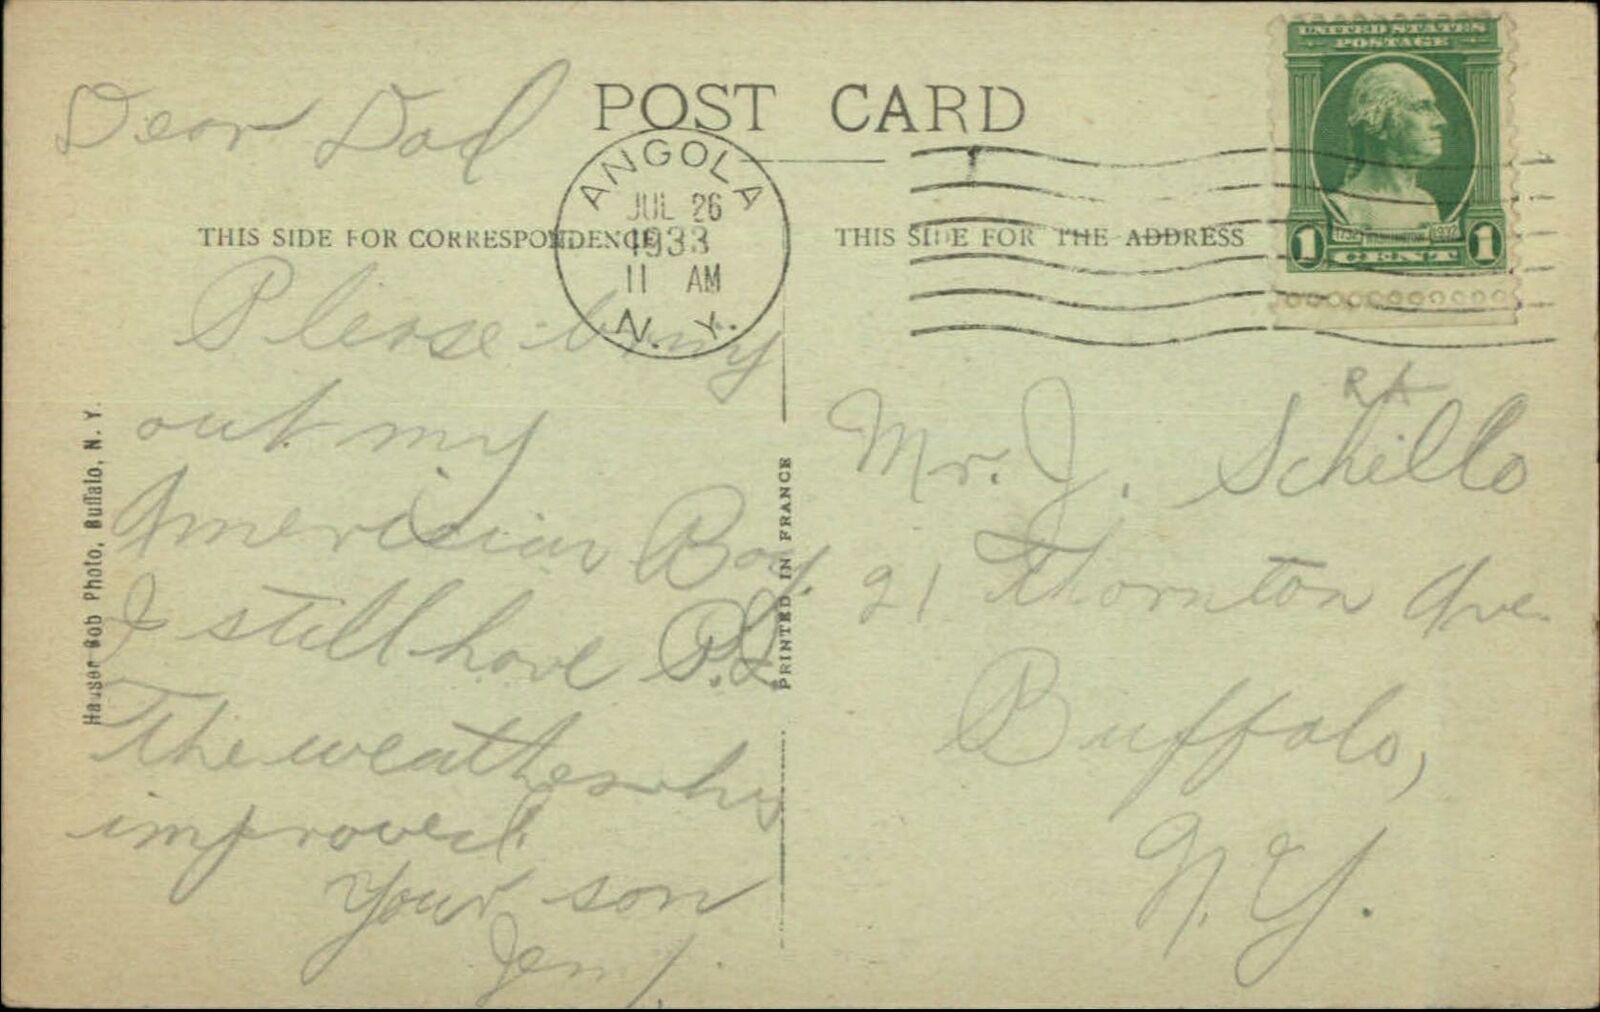 POST CARD
UNITED STATES
POSTAGE
1732 WASHINGTON 1932
1 CENT 1
ANGOLA
JUL 26
1933
11 AM
N. Y.
THIS SIDE FOR CORRESPONDENCE
THIS SIDE FOR THE ADDRESS
Dear Dad
Please bring
out my
American Boy.
I still have
The weather has
improved.
Your son
Hauser Bob Photo, Buffalo, N. Y.
PRINTED IN FRANCE
RA
Mr. J. Schillo
21 Thornton Ave.
Buffalo,
N.Y.